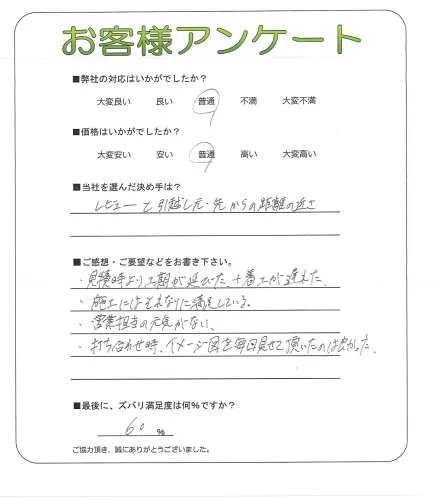 お客様アンケート
■弊社の対応はいかがでしたか？
大変良い 良い 普通 不満 大変不満
■価格はいかがでしたか？
大変安い 安い 普通 高い 大変高い
■当社を選んだ決め手は？
レビューと引越し元・先からの距離の近さ
■ご感想・ご要望などをお書き下さい。
・見積時より工期が延びた＋着工が遅れた。
・施工にはそれなりに満足している。
・営業担当の元気がない、
・打ち合わせ時、イメージ図を毎回見せて頂いたのは良かった。
■最後に、ズバリ満足度は何％ですか？
60 ％
ご協力頂き、誠にありがとうございました。